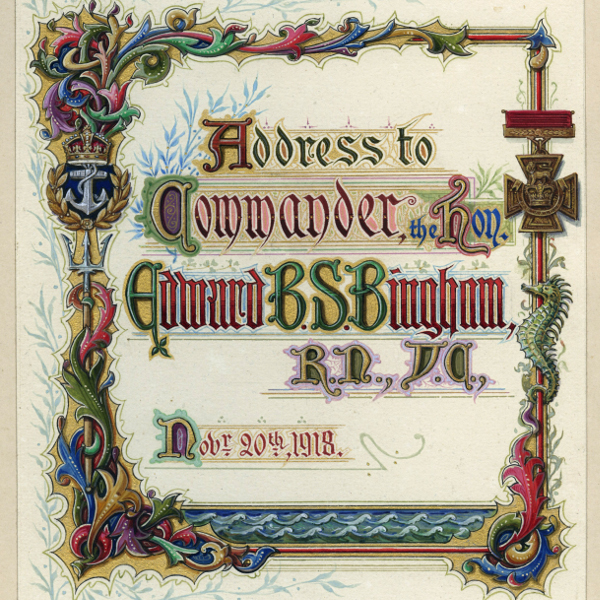 Address to
Commander, the Hon.
Edward B.S.Bingham,
R.N., V.C.,
Novr. 20th, 1918.